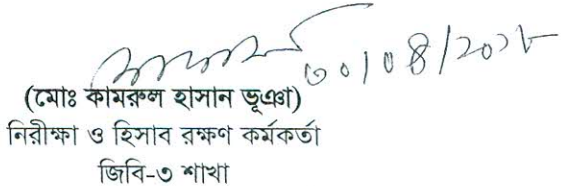 ৩০/০৪/২০২৮
(মোঃ কামরুল হাসান ভূঞা)
নিরীক্ষা ও হিসাব রক্ষণ কর্মকর্তা
জিবি-৩ শাখা